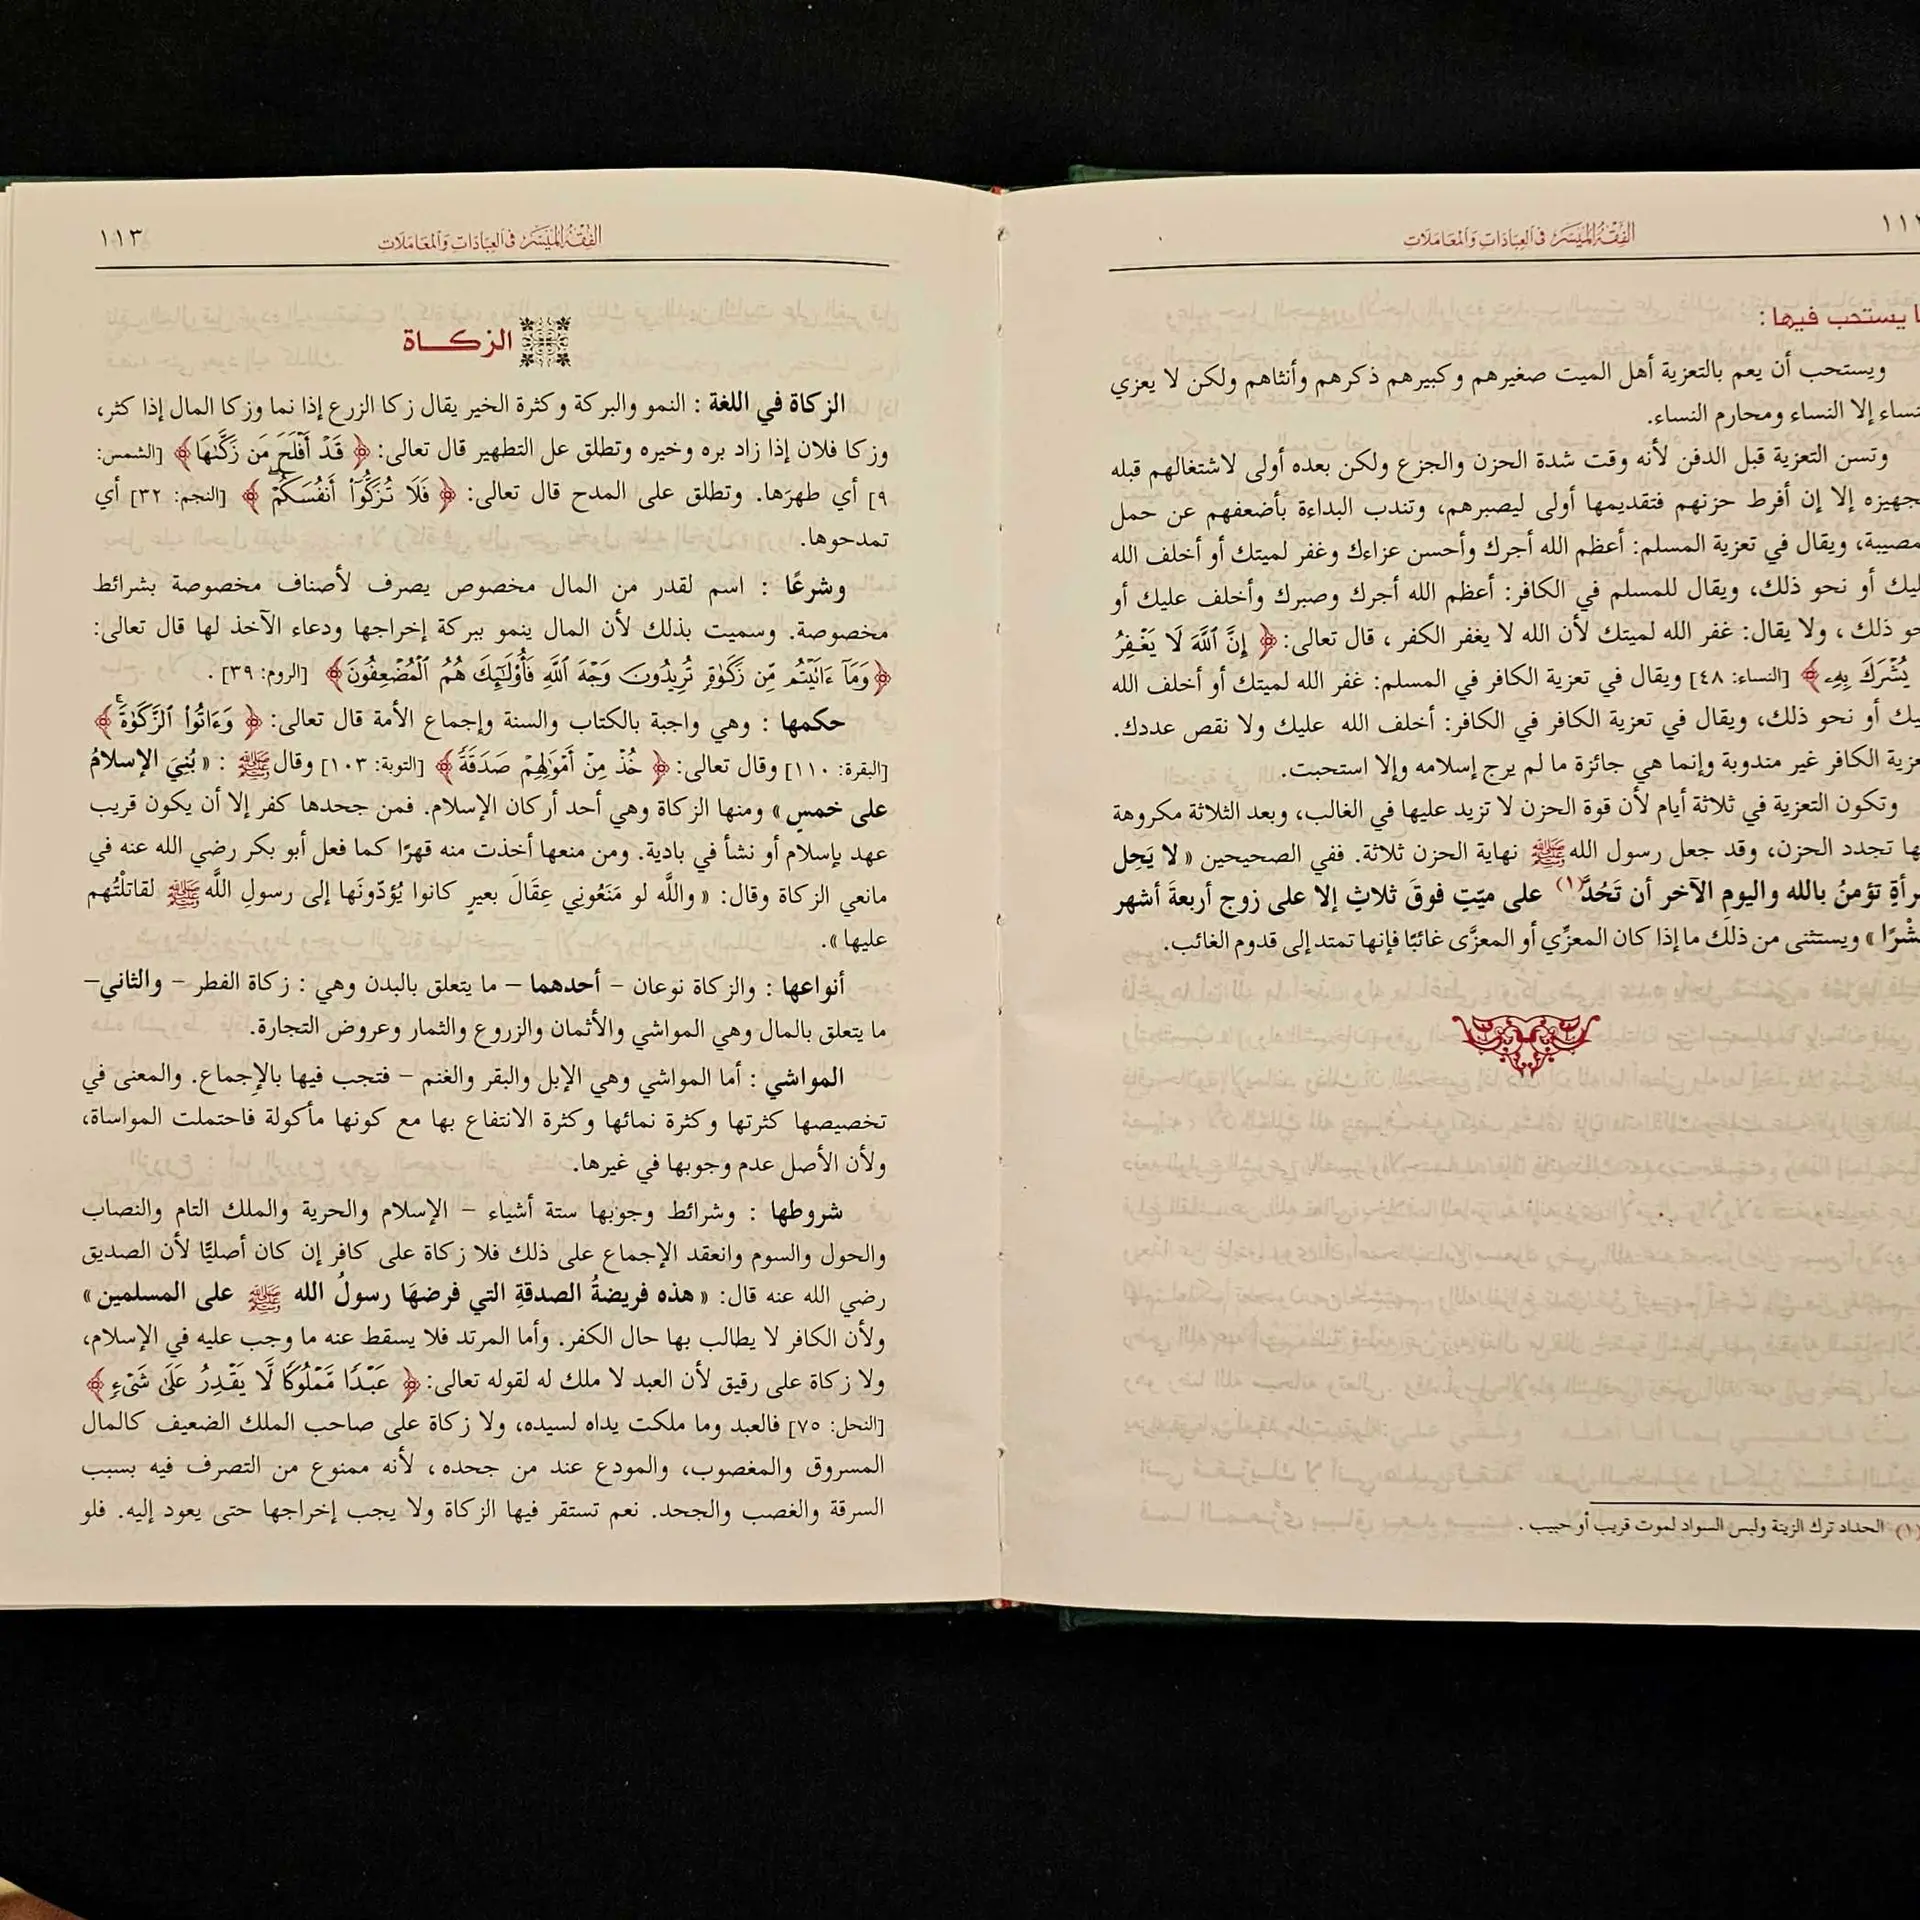 الفقه الميسر في العبادات والمعاملات
يستحب فيها :
ويستحب أن يعم بالتعزية أهل الميت صغيرهم وكبيرهم ذكرهم وأنثاهم ولكن لا يعزي
إلا النساء ومحارم النساء.
وتسن التعزية قبل الدفن لأنه وقت شدة الحزن والجزع ولكن بعده أولى لاشتغالهم قبله
إلا إن أفرط حزنهم فتقديمها أولى ليصبرهم، وتندب البداءة بأضعفهم عن حمل
ويقال في تعزية المسلم: أعظم الله أجرك وأحسن عزاءك وغفر لميتك أو أخلف الله
أو نحو ذلك، ويقال للمسلم في الكافر: أعظم الله أجرك وصبرك وأخلف عليك أو
ذلك ، ولا يقال: غفر الله لميتك لأن الله لا يغفر الكفر ، قال تعالى: ﴿ إِنَّ ٱللَّهَ لَا يَغْفِرُ
يُشْرَكَ بِهِۦ ﴾ [النساء: ٤٨] ويقال في تعزية الكافر في المسلم: غفر الله لميتك أو أخلف الله
أو نحو ذلك، ويقال في تعزية الكافر في الكافر: أخلف الله عليك ولا نقص عددك.
الكافر غير مندوبة وإنما هي جائزة ما لم يرج إسلامه وإلا استحبت.
وتكون التعزية في ثلاثة أيام لأن قوة الحزن لا تزيد عليها في الغالب، وبعد الثلاثة مكروهة
تجدد الحزن، وقد جعل رسول الله ﷺ نهاية الحزن ثلاثة. ففي الصحيحين « لا يَحِل
تؤمنُ بالله واليومِ الآخر أن تَحُدَّ(١) على ميّتٍ فوقَ ثلاثٍ إلا على زوج أربعةَ أشهر
» ويستثنى من ذلك ما إذا كان المعزِّي أو المعزَّى غائبًا فإنها تمتد إلى قدوم الغائب.
(١) الحداد ترك الزينة ولبس السواد لموت قريب أو حبيب .
الفقه الميسر في العبادات والمعاملات ١١٣
الزكاة
الزكاة في اللغة : النمو والبركة وكثرة الخير يقال زكا الزرع إذا نما وزكا المال إذا كثر،
وزكا فلان إذا زاد بره وخيره وتطلق عل التطهير قال تعالى: ﴿ قَدْ أَفْلَحَ مَن زَكَّىٰهَا ﴾ [الشمس:
٩] أي طهرَها. وتطلق على المدح قال تعالى: ﴿ فَلَا تُزَكُّوٓا۟ أَنفُسَكُمْ ۖ ﴾ [النجم: ٣٢] أي
تمدحوها.
وشرعًا : اسم لقدر من المال مخصوص يصرف لأصناف مخصوصة بشرائط
مخصوصة. وسميت بذلك لأن المال ينمو ببركة إخراجها ودعاء الآخذ لها قال تعالى:
﴿ وَمَآ ءَاتَيْتُم مِّن زَكَوٰةٍ تُرِيدُونَ وَجْهَ ٱللَّهِ فَأُو۟لَـٰٓئِكَ هُمُ ٱلْمُضْعِفُونَ ﴾ [الروم: ٣٩] .
حكمها : وهي واجبة بالكتاب والسنة وإجماع الأمة قال تعالى: ﴿ وَءَاتُوا۟ ٱلزَّكَوٰةَ ۚ ﴾
[البقرة: ١١٠] وقال تعالى: ﴿ خُذْ مِنْ أَمْوَٰلِهِمْ صَدَقَةً ﴾ [التوبة: ١٠٣] وقال ﷺ : « بُنِيَ الإسلامُ
على خمسٍ » ومنها الزكاة وهي أحد أركان الإسلام. فمن جحدها كفر إلا أن يكون قريب
عهد بإسلام أو نشأ في بادية. ومن منعها أخذت منه قهرًا كما فعل أبو بكر رضي الله عنه في
مانعي الزكاة وقال: « واللَّه لو مَنَعُونِي عِقَالَ بعيرٍ كانوا يُؤدّونَها إلى رسولِ اللَّه ﷺ لقاتلْتُهم
عليها ».
أنواعها : والزكاة نوعان – أحدهما – ما يتعلق بالبدن وهي : زكاة الفطر – والثاني–
ما يتعلق بالمال وهي المواشي والأثمان والزروع والثمار وعروض التجارة.
المواشي : أما المواشي وهي الإبل والبقر والغنم – فتجب فيها بالإجماع. والمعنى في
تخصيصها كثرتها وكثرة نمائها وكثرة الانتفاع بها مع كونها مأكولة فاحتملت المواساة،
ولأن الأصل عدم وجوبها في غيرها.
شروطها : وشرائط وجوبها ستة أشياء – الإسلام والحرية والملك التام والنصاب
والحول والسوم وانعقد الإجماع على ذلك فلا زكاة على كافر إن كان أصليًّا لأن الصديق
رضي الله عنه قال: « هذه فريضةُ الصدقةِ التي فرضهَا رسولُ الله ﷺ على المسلمين »
ولأن الكافر لا يطالب بها حال الكفر. وأما المرتد فلا يسقط عنه ما وجب عليه في الإسلام،
ولا زكاة على رقيق لأن العبد لا ملك له لقوله تعالى: ﴿ عَبْدًا مَّمْلُوكًا لَّا يَقْدِرُ عَلَىٰ شَىْءٍ ﴾
[النحل: ٧٥] فالعبد وما ملكت يداه لسيده، ولا زكاة على صاحب الملك الضعيف كالمال
المسروق والمغصوب، والمودع عند من جحده، لأنه ممنوع من التصرف فيه بسبب
السرقة والغصب والجحد. نعم تستقر فيها الزكاة ولا يجب إخراجها حتى يعود إليه. فلو